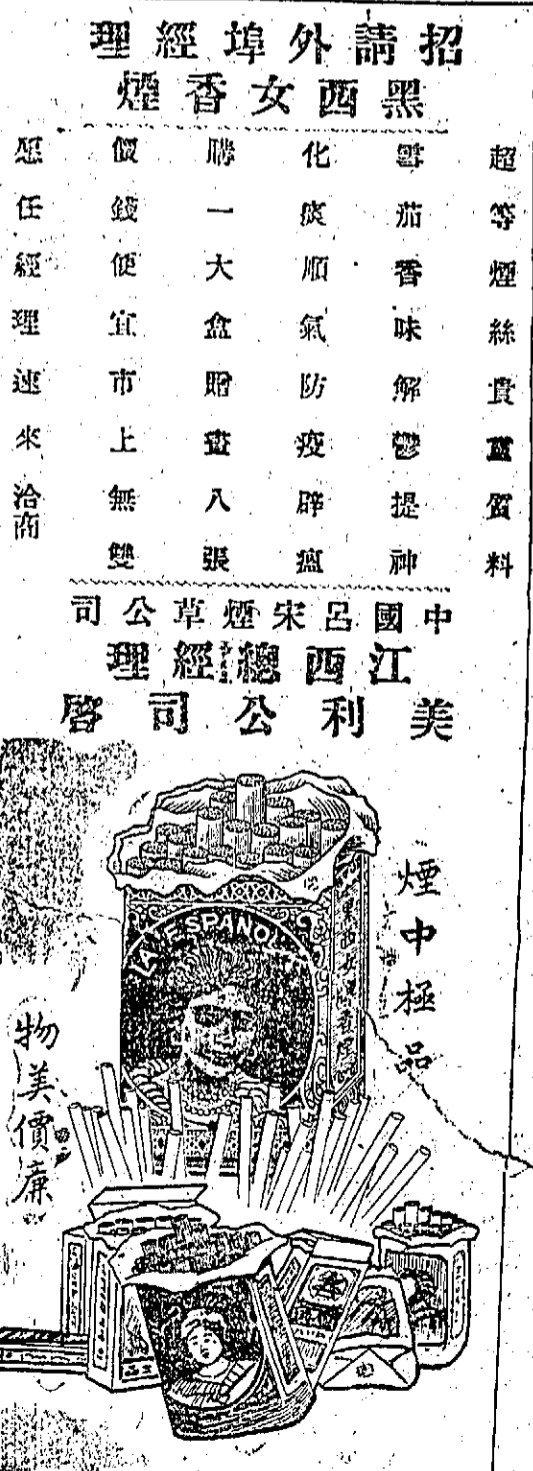 招請外埠經理
黑西女香煙
超等煙絲貴重質料
雪茄香味解鬱提神
化痰順氣防疫辟瘟
購一大盒贈畫八張
價錢便宜市上無雙
願任經理速來洽商
中國呂宋煙草公司
江西總經理
美利公司啓
煙中極品
物美價廉
黑西女牌香煙